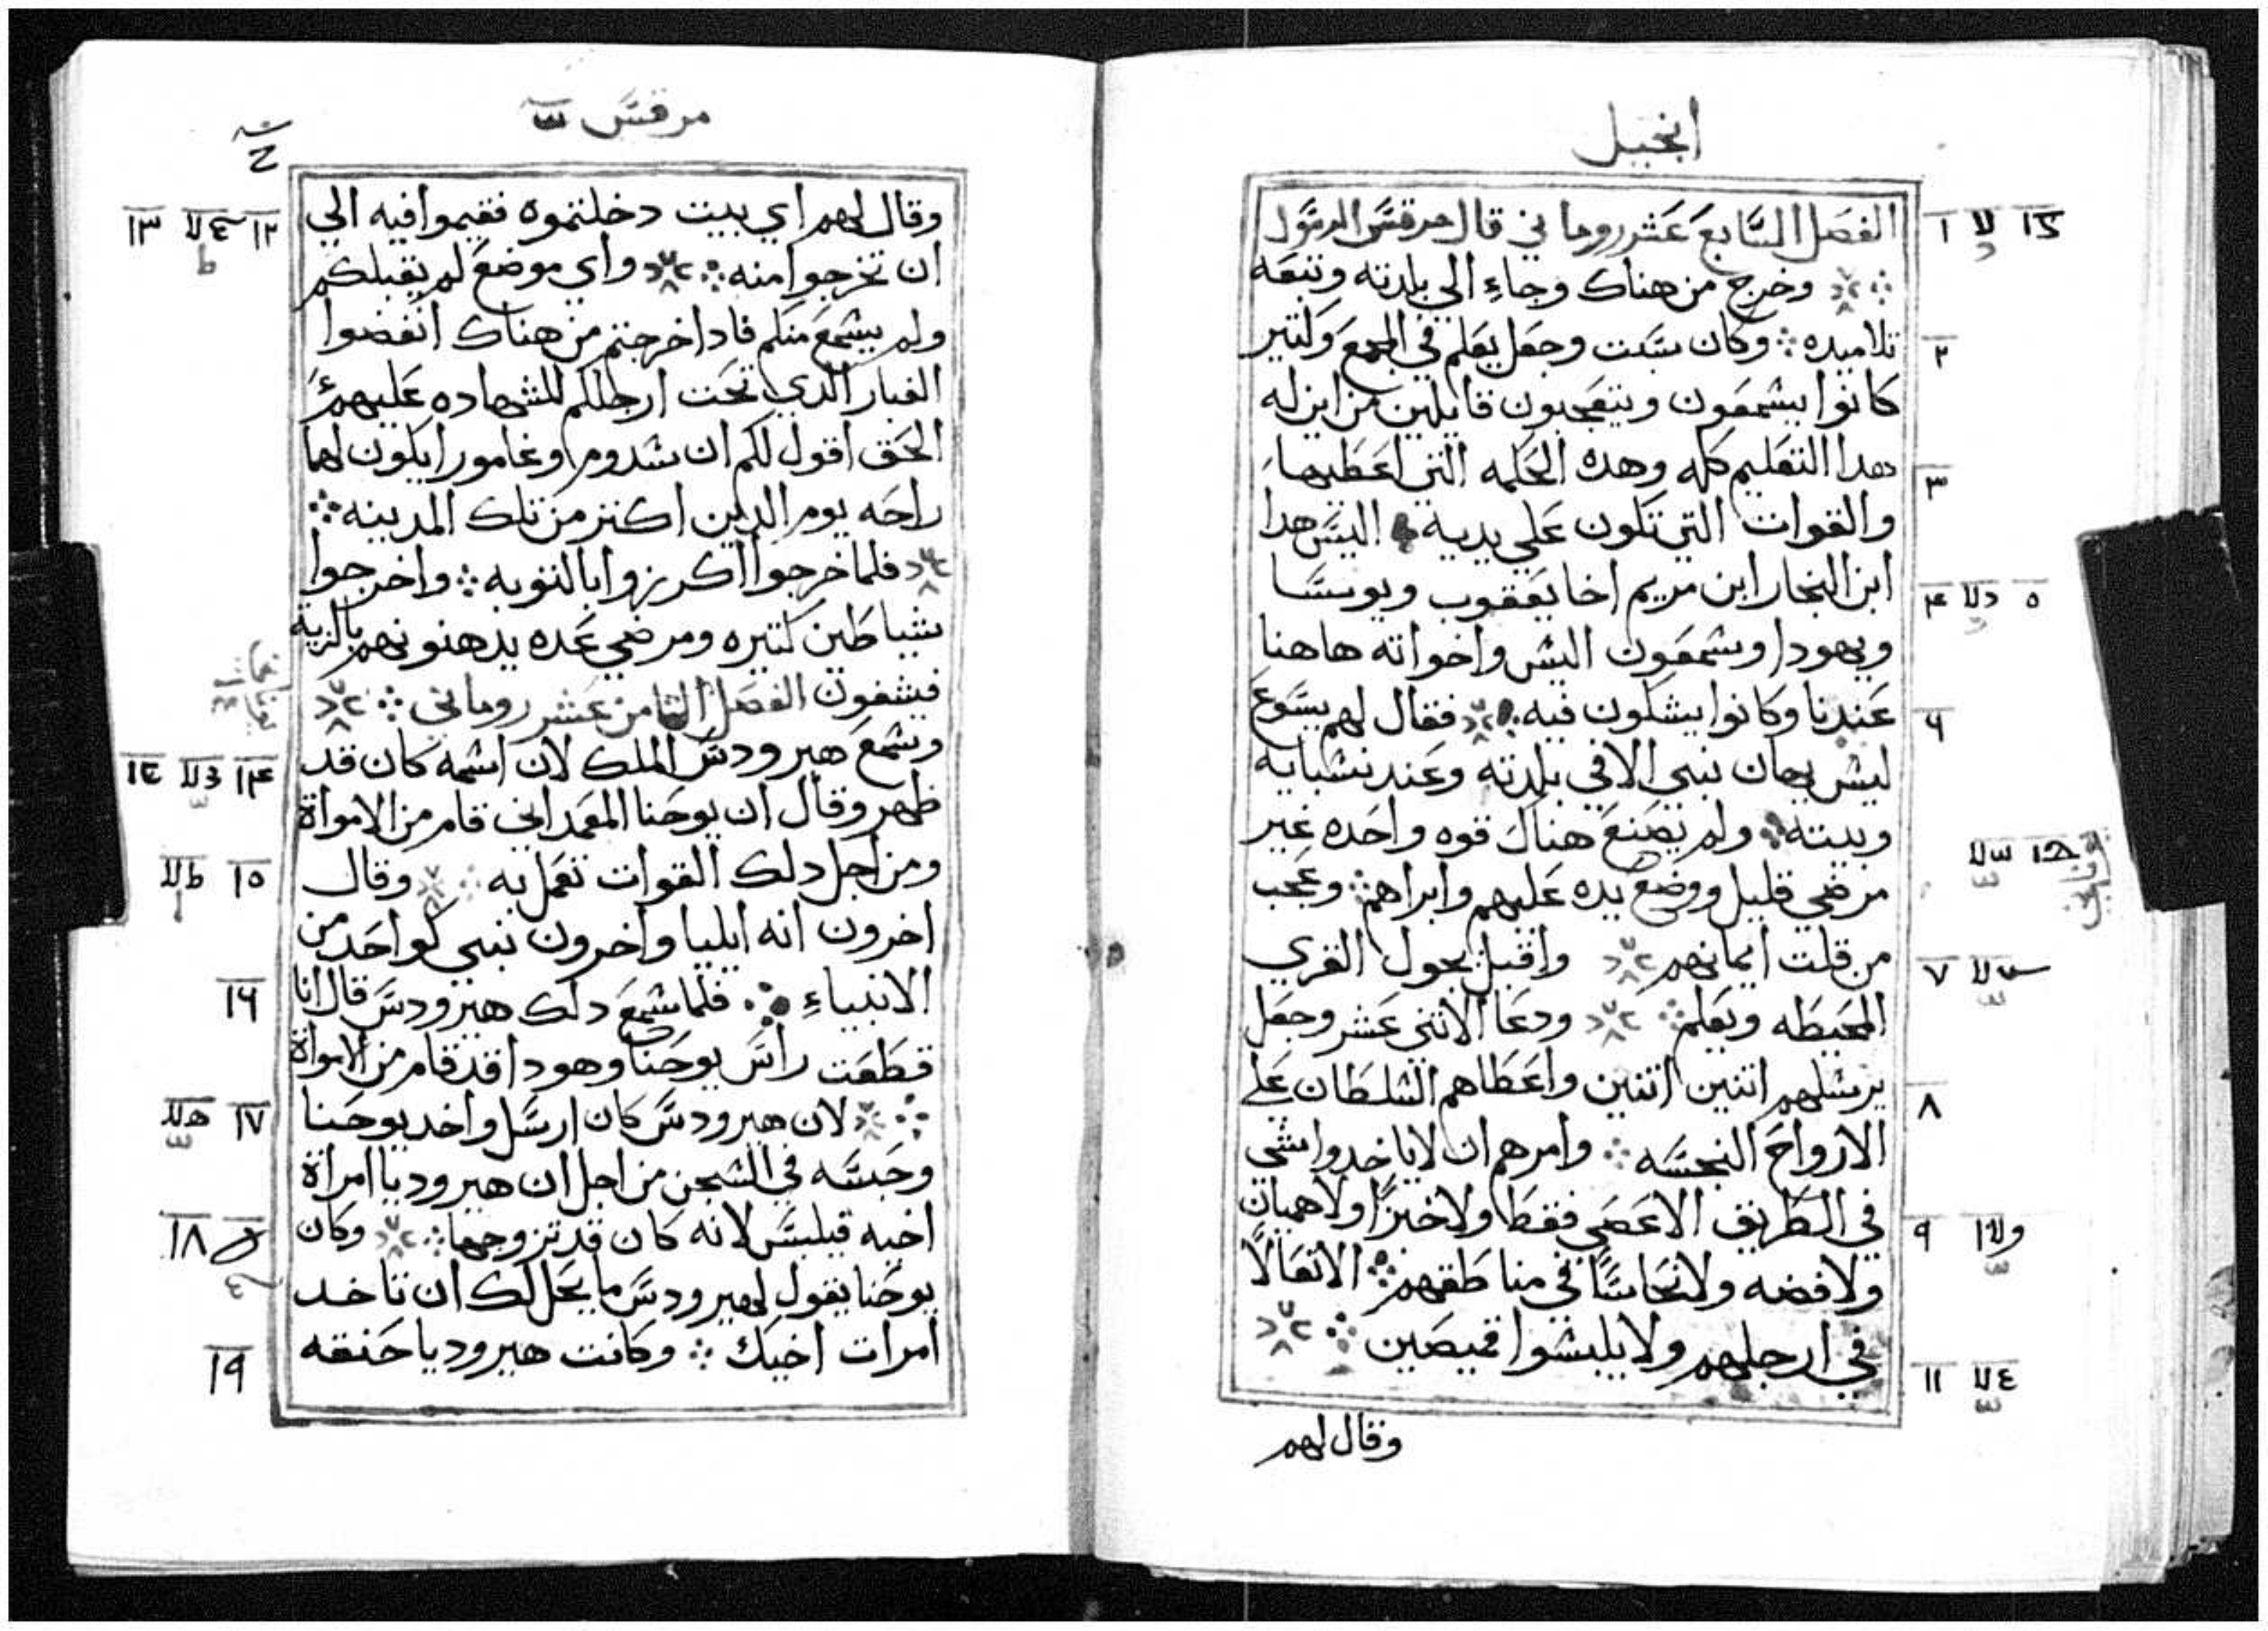 انجيل
الفصل السابع عشر روماني قال مرقس الرسول
وخرج من هناك وجاء الي بلدته وتبعه
تلاميده وكان سبت وجعل يعلم في المجمع وكتير
كانوا يسمعون ويتعجبون قايلين من اين له
هدا التعليم كله وهده الحكمه التي اعطيها
والقوات التي تكون علي يديه اليس هدا
ابن النجار ابن مريم اخا يعقوب ويوسا
ويهودا وسمعون اليس واخواته هاهنا
عندنا وكانوا يشكون فيه فقال لهم يسوع
ليس يهان نبي الا في بلدته وعند نسبايه
وبيته ولم يصنع هناك قوه واحده غير
مرضي قليل ووضع يده عليهم وابراهم وعجب
من قلت ايمانهم واقبل يجول القري
المحيطه ويعلم ودعا الاتني عشر وجعل
يرسلهم اتنين اتنين واعطاهم السلطان علي
الارواح النجسه وامرهم ان لا ياخدوا شي
في الطريق الا عصي فقط ولا خبزا ولا هميان
ولا فضه ولا نحاسا في مناطقهم الا نعالا
في ارجلهم ولا يلبسوا قميصين
وقال لهم
١
٢
٣
٤ ٥
٦
٧
٨
٩
١١
مرقس
وقال لهم اي بيت دخلتموه فقيموا فيه الي
ان تخرجوا منه واي موضع لم يقبلكم
ولم يسمع منكم فادا خرجتم من هناك انفضوا
الغبار الدي تحت ارجلكم للشهاده عليهم
الحق اقول لكم ان سدوم وغامورا يكون لهما
راحه يوم الدين اكتر من تلك المدينه
فلما خرجوا اكرزوا بالتوبه واخرجوا
شياطين كتيره ومرضي عده يدهنونهم بالزيت
فيشفون الفصل التامن عشر روماني
وسمع هيرودس الملك لان اسمه كان قد
ظهر وقال ان يوحنا المعمداني قام من الامواة
ومن اجل دلك القوات تعمل به وقال
اخرون انه ايليا واخرون نبي كواحد من
الانبياء فلما سمع دلك هيرودس قال انا
قطعت راس يوحنا وهودا قد قام من الامواة
لان هيرودس كان ارسل واخد يوحنا
وحبسه في السجن من اجل ان هيروديا امراة
اخيه فيلبس لانه كان قد تزوجها وكان
يوحنا يقول لهيرودس ما يحل لك ان تاخد
امرات اخيك وكانت هيروديا حنقه
١٢ ١٣
١٤
١٥
١٦
١٧
١٨
١٩